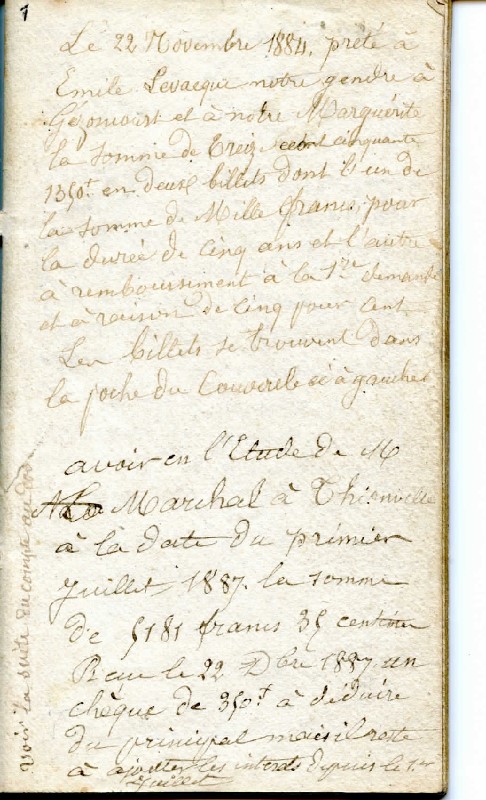 1
Le 22 Novembre 1884, prété à
Emile Levacque notre gendre à
et à notre Marguérite
la somme de treiz cent cinquante
1350f. en deux billets dont l'un de
la somme de Mille francs, pour
la durée de cinq ans et l'autre
à remboursement à la 1re demande
et à raison de cinq pour cent
Les billets se trouvent dans
la poche du Couvercle ci à gauche
avoir en l'Etude de M
Marchal à Thionville
à la date du prémier
Juillet 1887. la somme
de 5181 francs 35 centime
Reçu le 22 Dbre 1887 un
chèque de 350f à déduire
du principal mais il reste
à ajouter les interets depuis le 1er
Juillet
voir la suite du compte au dos